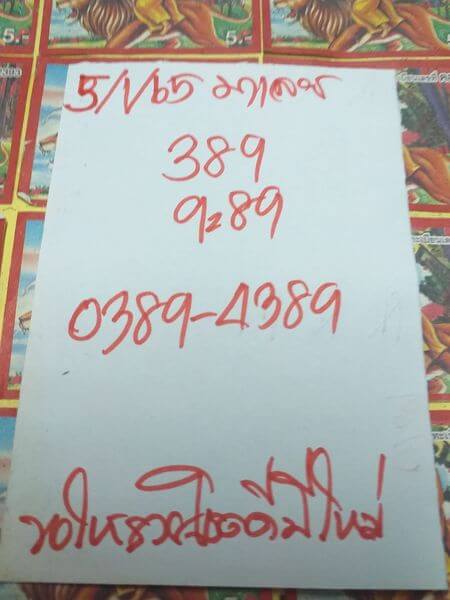 5.-
5.-
5/1/65 มาเลย์
389
9=89
0389-4389
ขอให้รวยโชคดีปีใหม่